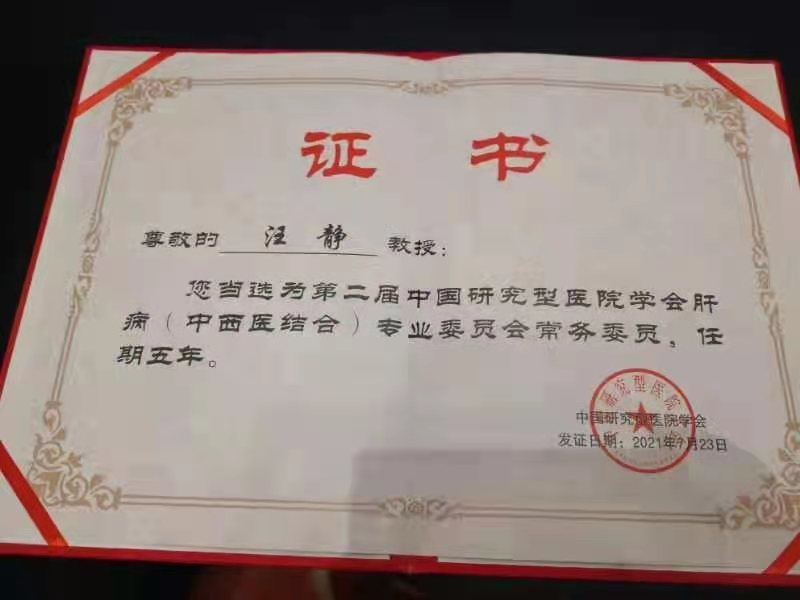 证书
尊敬的 汪静 教授：
您当选为第二届中国研究型医院学会肝
病（中西医结合）专业委员会常务委员，任
期五年。
中国研究型医院学会
发证日期：2021年7月23日
研究型医院